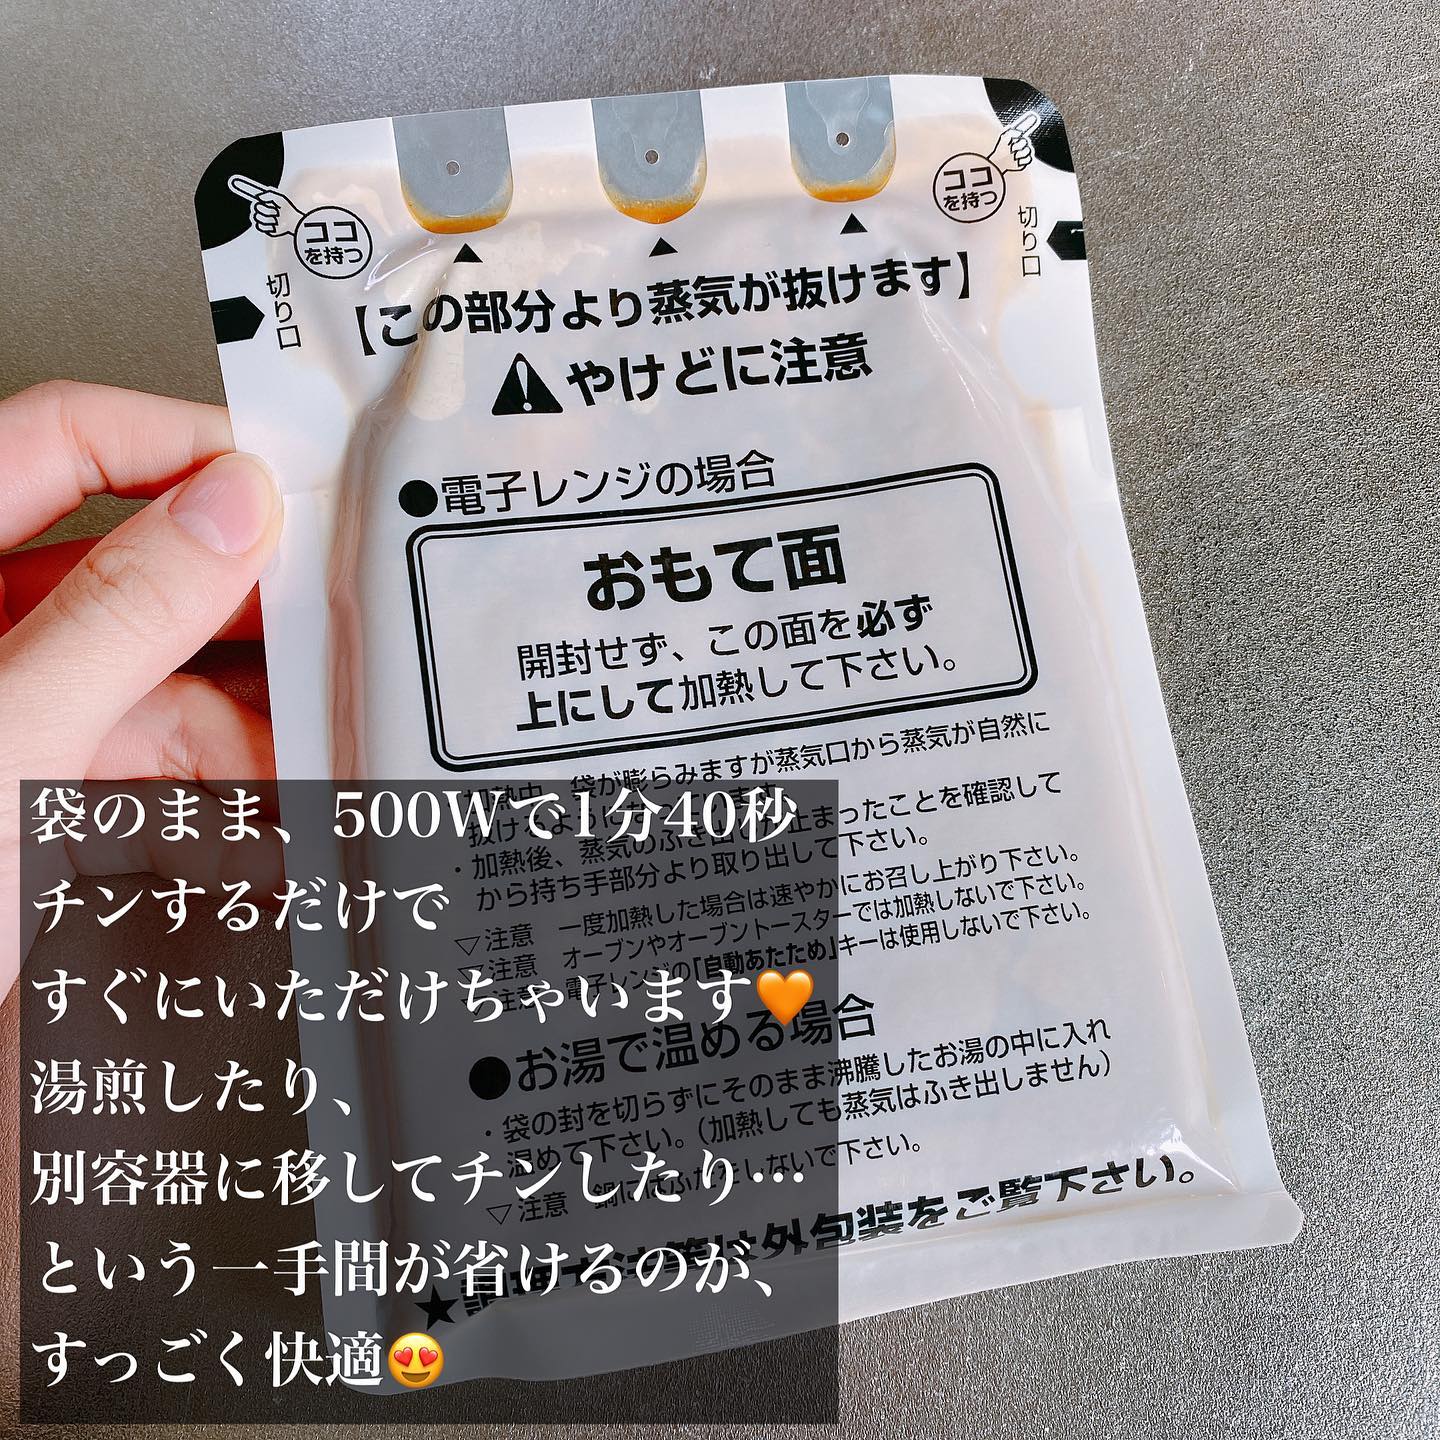 ココ
を持つ
切り口
ココ
を持つ
切り口
【この部分より蒸気が抜けます】
やけどに注意
●電子レンジの場合
おもて面
開封せず、この面を必ず
上にして加熱して下さい。
加熱中、袋が膨らみますが蒸気口から蒸気が自然に
抜けるようになっています。
・加熱後、蒸気のふき出しが止まったことを確認して
から持ち手部分より取り出して下さい。
▽注意 一度加熱した場合は速やかにお召し上がり下さい。
▽注意 オーブンやオーブントースターでは加熱しないで下さい。
▽注意 電子レンジの「自動あたため」キーは使用しないで下さい。
●お湯で温める場合
・袋の封を切らずにそのまま沸騰したお湯の中に入れ
温めて下さい。(加熱しても蒸気はふき出しません)
▽注意 鍋にはふたをしないで下さい。
★調理方法等は外包装をご覧下さい。
袋のまま、500Wで1分40秒
チンするだけで
すぐにいただけちゃいます🧡
湯煎したり、
別容器に移してチンしたり…
という一手間が省けるのが、
すっごく快適😍